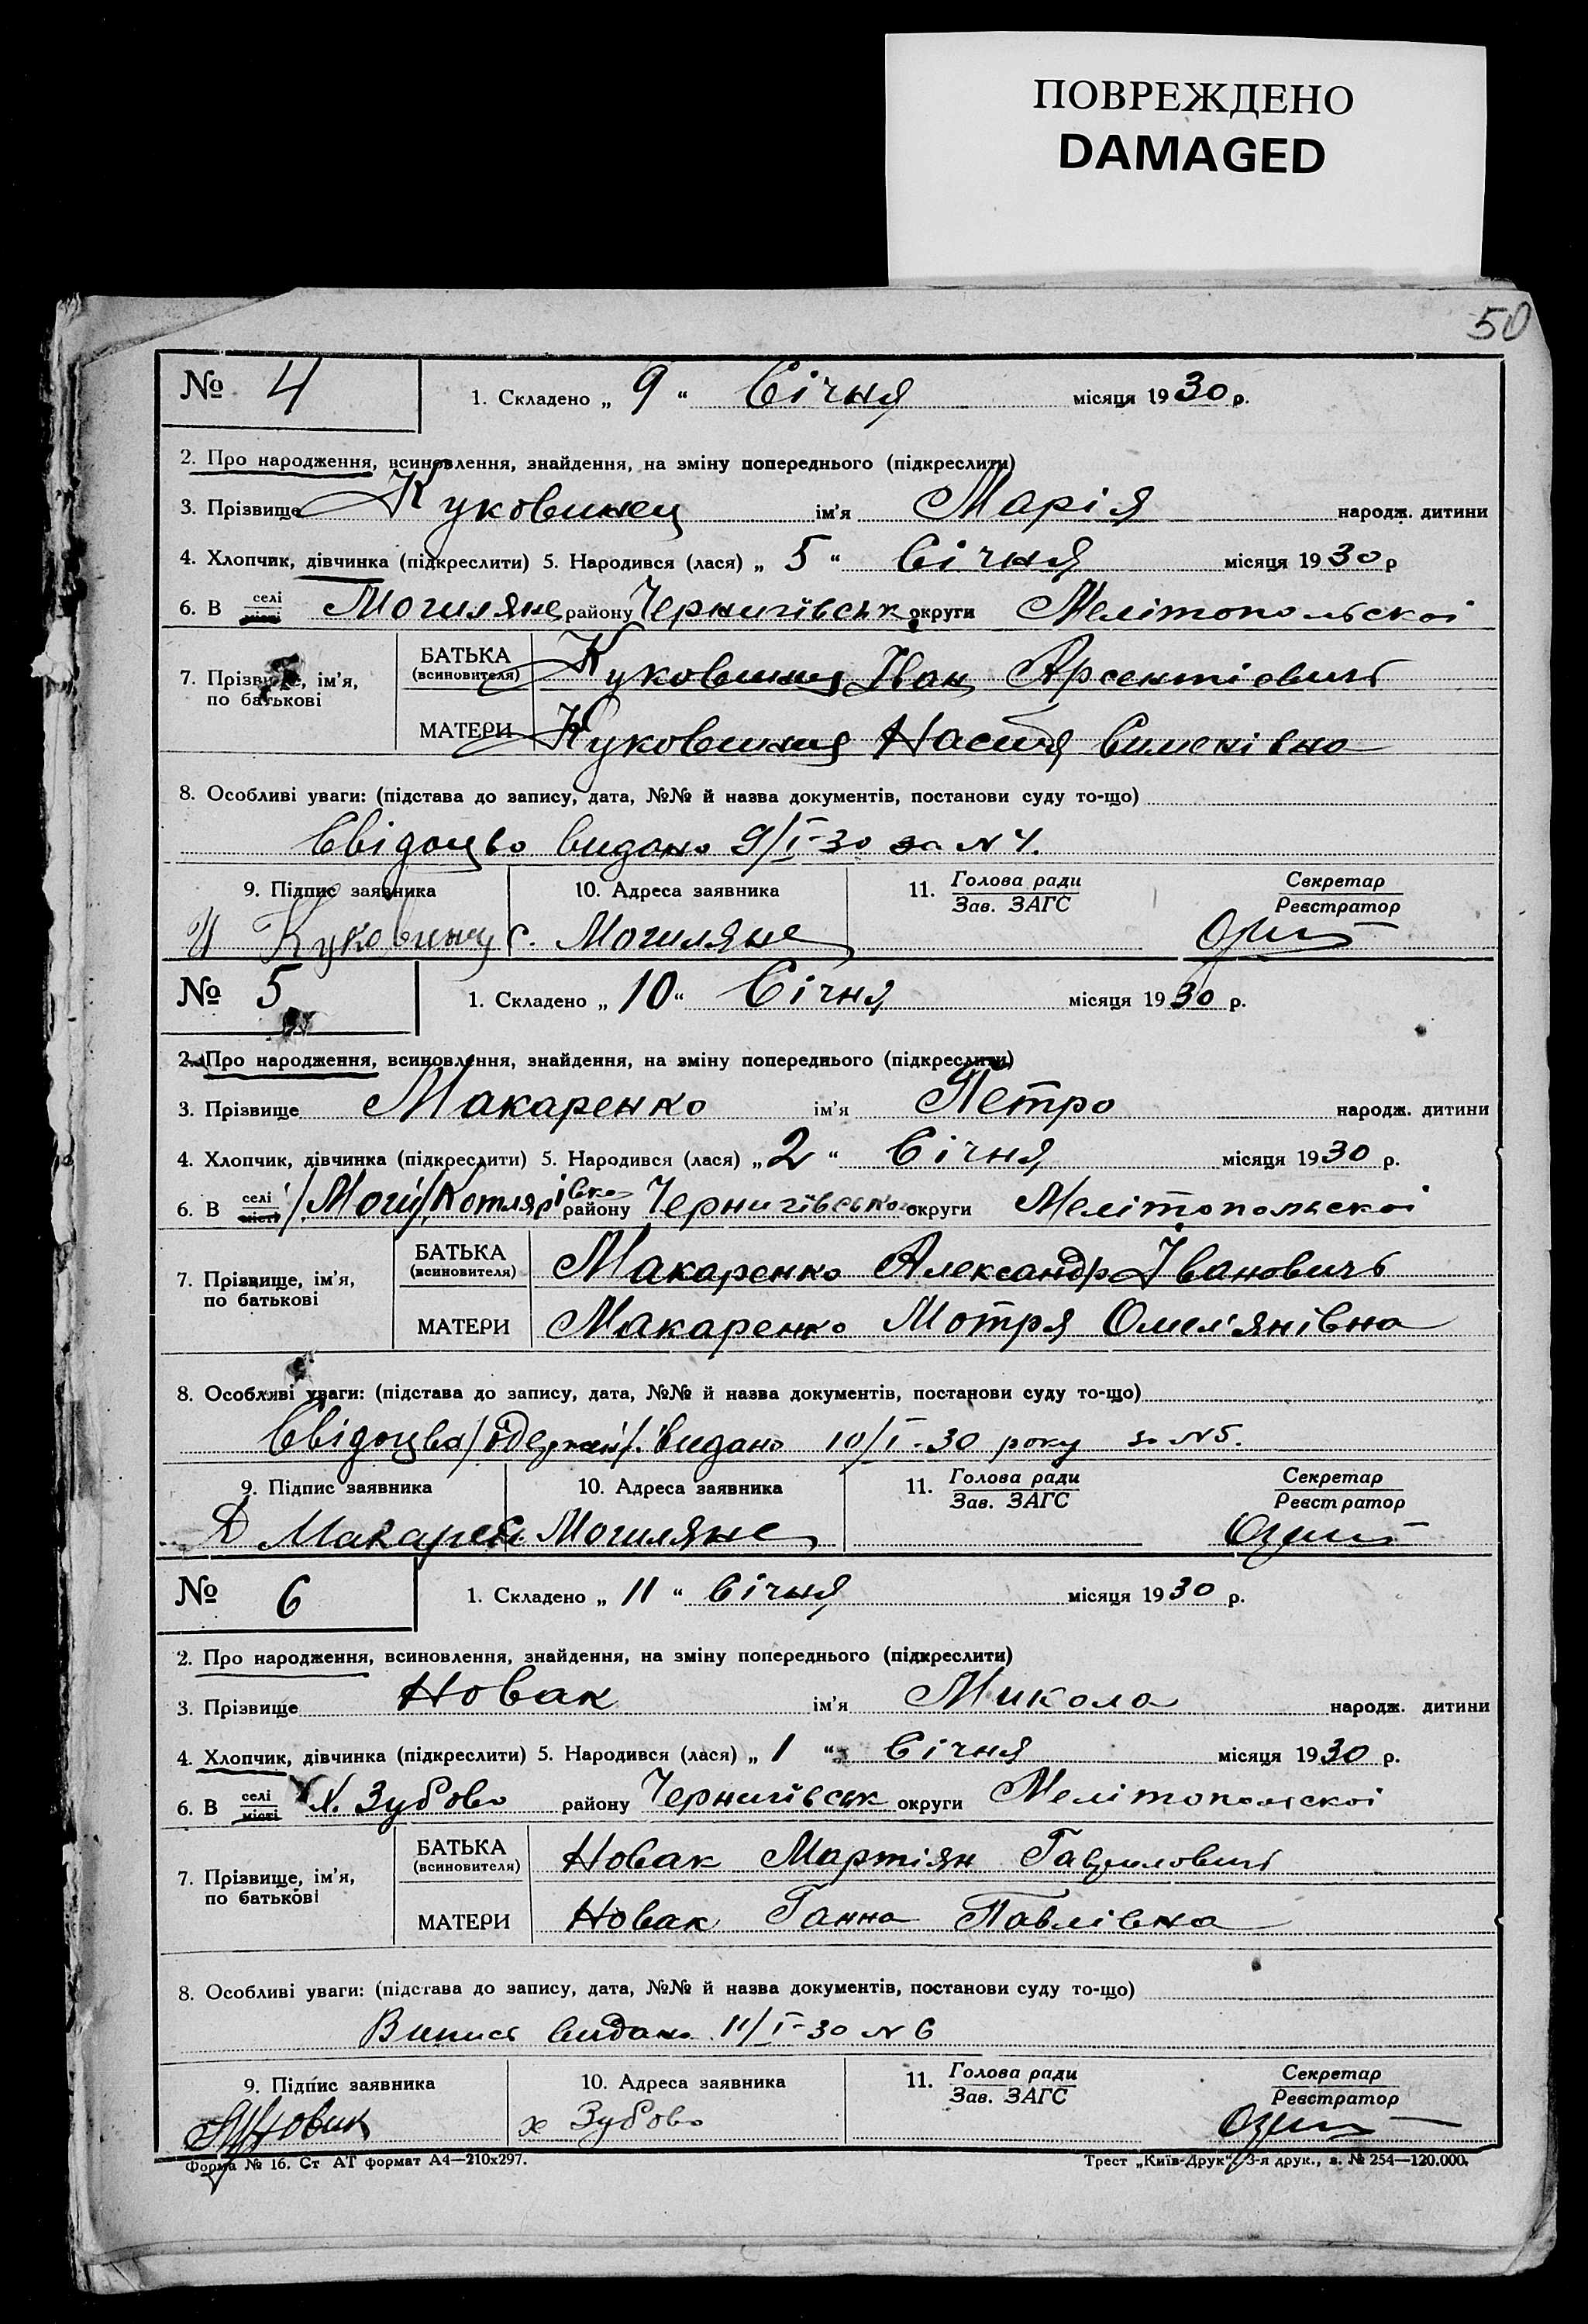 ПОВРЕЖДЕНО
DAMAGED
50
№ 4
1. Складено „ 9 “ Січня місяця 1930 р.
2. Про народження, всиновлення, знайдення, на зміну попереднього (підкреслити)
3. Прізвище Куковинец ім’я Марія народж. дитини
4. Хлопчик, дівчинка (підкреслити) 5. Народився (лася) „ 5 “ Січня місяця 1930 р
6. В селі місті Могиляне району Чернигівськ округи Мелітопольскоі
7. Прізвище, ім’я, по батькові
БАТЬКА (всиновителя) Іван Арсентіевичь
МАТЕРИ Настя
8. Особливі уваги: (підстава до запису, дата, №№ й назва документів, постанови суду то-що)
Свідоцво видано 9/I-30 за N 4.
9. Підпис заявника 10. Адреса заявника 11. Голова ради Зав. ЗАГС Секретар Реєстратор
с. Могиляне
№ 5
1. Складено „ 10 “ Січня місяця 1930 р.
2. Про народження, всиновлення, знайдення, на зміну попереднього (підкреслити)
3. Прізвище Макаренко ім’я Петро народж. дитини
4. Хлопчик, дівчинка (підкреслити) 5. Народився (лася) „ 2 “ Січня місяця 1930 р.
6. В селі місті /Моги/ Котлярівка району Чернигівсько округи Мелітопольскоі
7. Прізвище, ім’я, по батькові
БАТЬКА (всиновителя) Макаренко Александр Івановичь
МАТЕРИ Макаренко Мотря Омел’янівна
8. Особливі уваги: (підстава до запису, дата, №№ й назва документів, постанови суду то-що)
Свідоцва видано 10/I-30 року за N 5.
9. Підпис заявника 10. Адреса заявника 11. Голова ради Зав. ЗАГС Секретар Реєстратор
с. Могиляне
№ 6
1. Складено „ 11 “ Січня місяця 1930 р.
2. Про народження, всиновлення, знайдення, на зміну попереднього (підкреслити)
3. Прізвище Новак ім’я Микола народж. дитини
4. Хлопчик, дівчинка (підкреслити) 5. Народився (лася) „ 1 “ Січня місяця 1930 р.
6. В селі місті х. Зубово району Чернигівськ округи Мелітопольскоі
7. Прізвище, ім’я, по батькові
БАТЬКА (всиновителя) Новак Мартіян Гаврилович
МАТЕРИ Новак Ганна Павлівна
8. Особливі уваги: (підстава до запису, дата, №№ й назва документів, постанови суду то-що)
Випись видано 11/I-30 N 6
9. Підпис заявника 10. Адреса заявника 11. Голова ради Зав. ЗАГС Секретар Реєстратор
х Зубово
Форма № 16. Ст АТ формат А4—210х297. Трест „Київ-Друк“, 3-я друк., з. № 254—120.000.